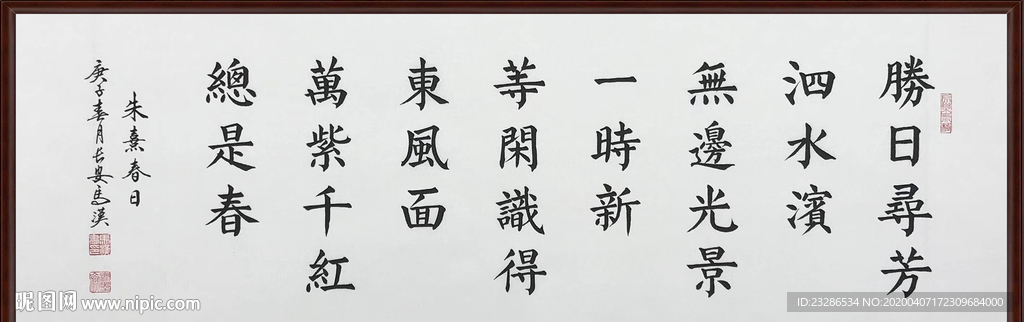 勝日尋芳
泗水濱
無邊光景
一時新
等閑識得
東風面
萬紫千紅
總是春
朱熹春日
庚子春月长安馬漢
昵图网 www.nipic.com
ID:23286534 NO:20200407172309684000